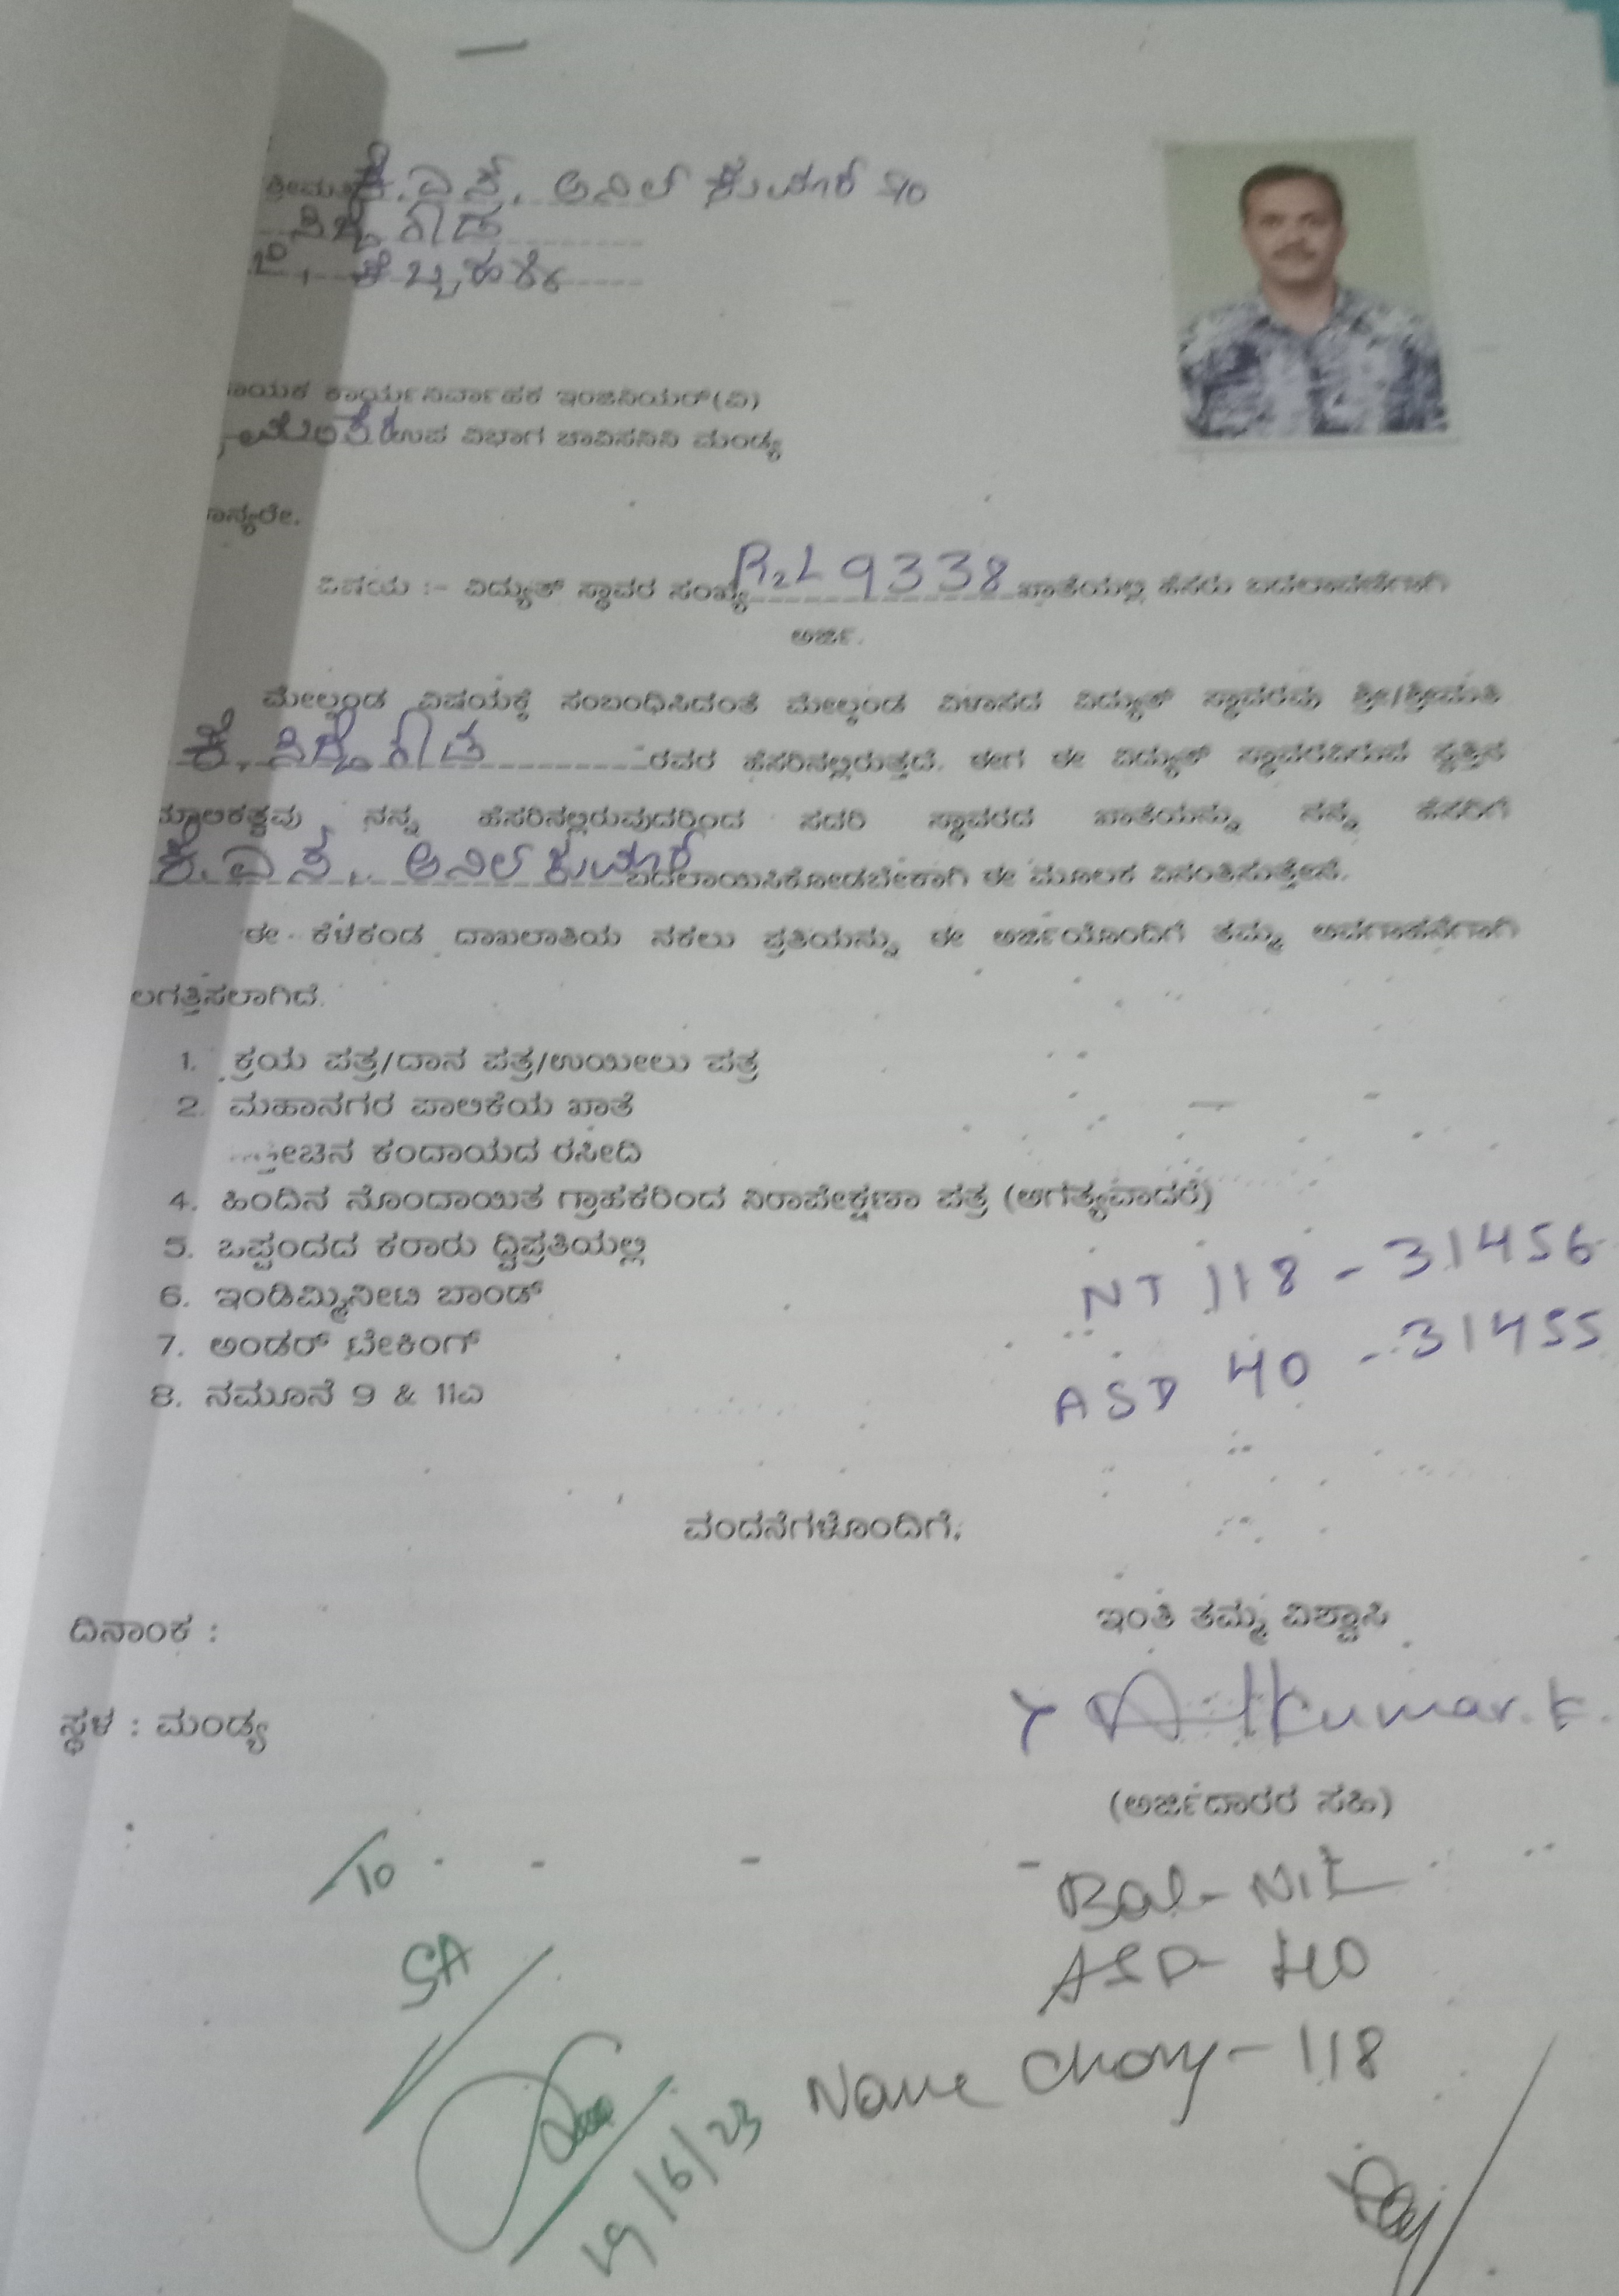 ಕೆ.ಎಸ್. ಅನಿಲ್ ಕುಮಾರ್ S/o
ಸಿದ್ದೇಗೌಡ
ಕಾರ್ಯನಿರ್ವಾಹಕ ಇಂಜಿನಿಯರ್(ವಿ)
ಉಪ ವಿಭಾಗ ಚಾವಿಸನಿನಿ ಮಂಡ್ಯ
ವಿಷಯ :- ವಿದ್ಯುತ್ ಸ್ಥಾವರ ಸಂಖ್ಯೆ R2L 9338 ಖಾತೆಯಲ್ಲಿ ಹೆಸರು ಬದಲಾವಣೆಗಾಗಿ
ಅರ್ಜಿ.
ಮೇಲ್ಕಂಡ ವಿಷಯಕ್ಕೆ ಸಂಬಂಧಿಸಿದಂತೆ ಮೇಲ್ಕಂಡ ವಿಳಾಸದ ವಿದ್ಯುತ್ ಸ್ಥಾವರವು ಶ್ರೀ/ಶ್ರೀಮತಿ
ಕೆ. ಸಿದ್ದೇಗೌಡ ರವರ ಹೆಸರಿನಲ್ಲಿರುತ್ತದೆ. ಈಗ ಈ ವಿದ್ಯುತ್ ಸ್ಥಾವರವಿರುವ ಸ್ವತ್ತಿನ
ಮಾಲಿಕತ್ವವು ನನ್ನ ಹೆಸರಿನಲ್ಲಿರುವುದರಿಂದ ಸದರಿ ಸ್ಥಾವರದ ಖಾತೆಯನ್ನು ನನ್ನ ಹೆಸರಿಗೆ
ಕೆ.ಎಸ್. ಅನಿಲ್ ಕುಮಾರ್ ಬದಲಾಯಿಸಿಕೋಡಬೇಕಾಗಿ ಈ ಮೂಲಕ ವಿನಂತಿಸುತ್ತೇನೆ.
ಈ ಕೆಳಕಂಡ ದಾಖಲಾತಿಯ ನಕಲು ಪ್ರತಿಯನ್ನು ಈ ಅರ್ಜಿಯೊಂದಿಗೆ ತಮ್ಮ ಅವಗಾಹನೆಗಾಗಿ
ಲಗತ್ತಿಸಲಾಗಿದೆ.
1. ಕ್ರಯ ಪತ್ರ/ದಾನ ಪತ್ರ/ಉಯೀಲು ಪತ್ರ
2. ಮಹಾನಗರ ಪಾಲಿಕೆಯ ಖಾತೆ
ಕಂದಾಯದ ರಸೀದಿ
4. ಹಿಂದಿನ ನೊಂದಾಯಿತ ಗ್ರಾಹಕರಿಂದ ನಿರಾಪೇಕ್ಷಣಾ ಪತ್ರ (ಅಗತ್ಯವಾದರೆ)
5. ಒಪ್ಪಂದದ ಕರಾರು ದ್ವಿಪ್ರತಿಯಲ್ಲಿ
6. ಇಂಡಿಮ್ನಿನೀಟಿ ಬಾಂಡ್
NT 118 - 31456
7. ಅಂಡರ್ ಟೇಕಿಂಗ್
ASD 40 - 31455
8. ನಮೂನೆ 9 & 11ಎ
ವಂದನೆಗಳೊಂದಿಗೆ,
ದಿನಾಂಕ :
ಇಂತಿ ತಮ್ಮ ವಿಶ್ವಾಸಿ
ಸ್ಥಳ : ಮಂಡ್ಯ
Anilkumar.K.
(ಅರ್ಜಿದಾರರ ಸಹಿ)
Bal- Nil
SA
ASD- 40
Name Chang - 118
19/6/23